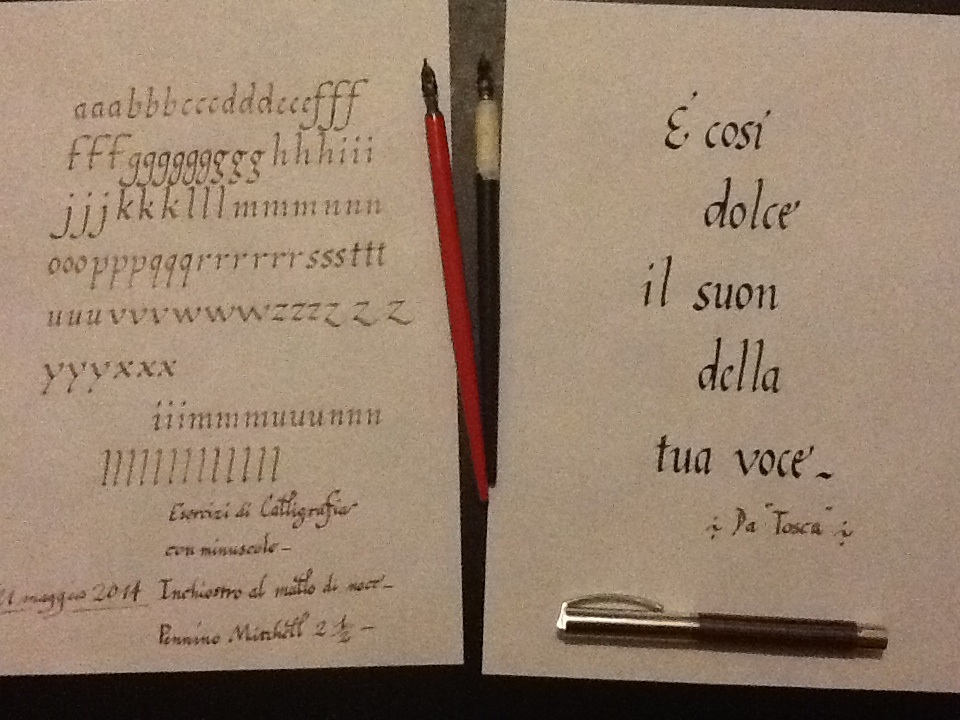 aaabbbcccdddeeefff
fffggggggggghhhiii
jjjkkklllmmmnnn
ooopppqqqrrrrrrssssttt
uuuvvvwwwzzzzzz
yyyxxx
iiimmmuuunnn
llllllllllll
Esercizi di Calligrafia
con minuscole -
maggio 2014 Inchiostro al mallo di noce -
Pennino Mitchell 2 1/2 -
É così
dolce
il suon
della
tua voce -
Da "Tosca"